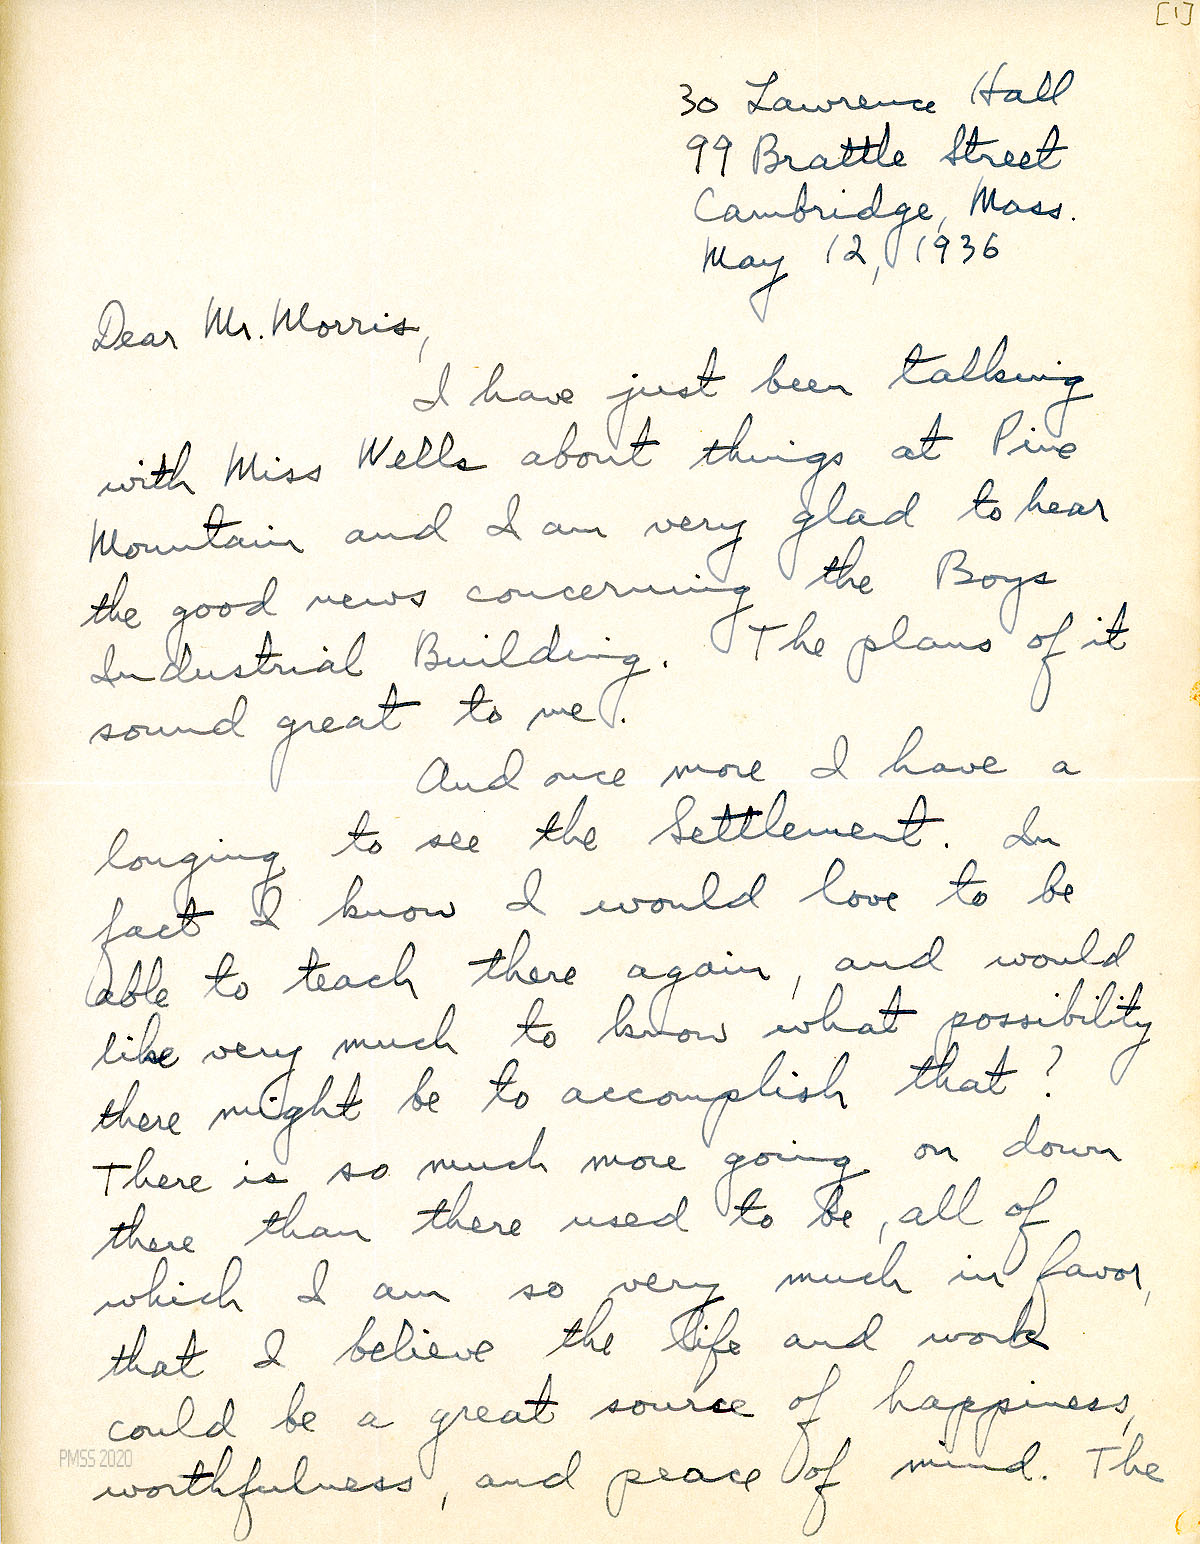 [1]
30 Lawrence Hall
99 Brattle Street
Cambridge, Mass.
May 12, 1936
Dear Mr. Morris,
I have just been talking
with Miss Wells about things at Pine
Mountain and I am very glad to hear
the good news concerning the Boys
Industrial Building. The plans of it
sound great to me.
And once more I have a
longing to see the Settlement. In
fact I know I would love to be
able to teach there again, and would
like very much to know what possibility
there might be to accomplish that?
There is so much more going on down
there than there used to be, all of
which I am so very much in favor,
that I believe the life and work
could be a great source of happiness,
worthfulness, and peace of mind. The
PMSS 2020